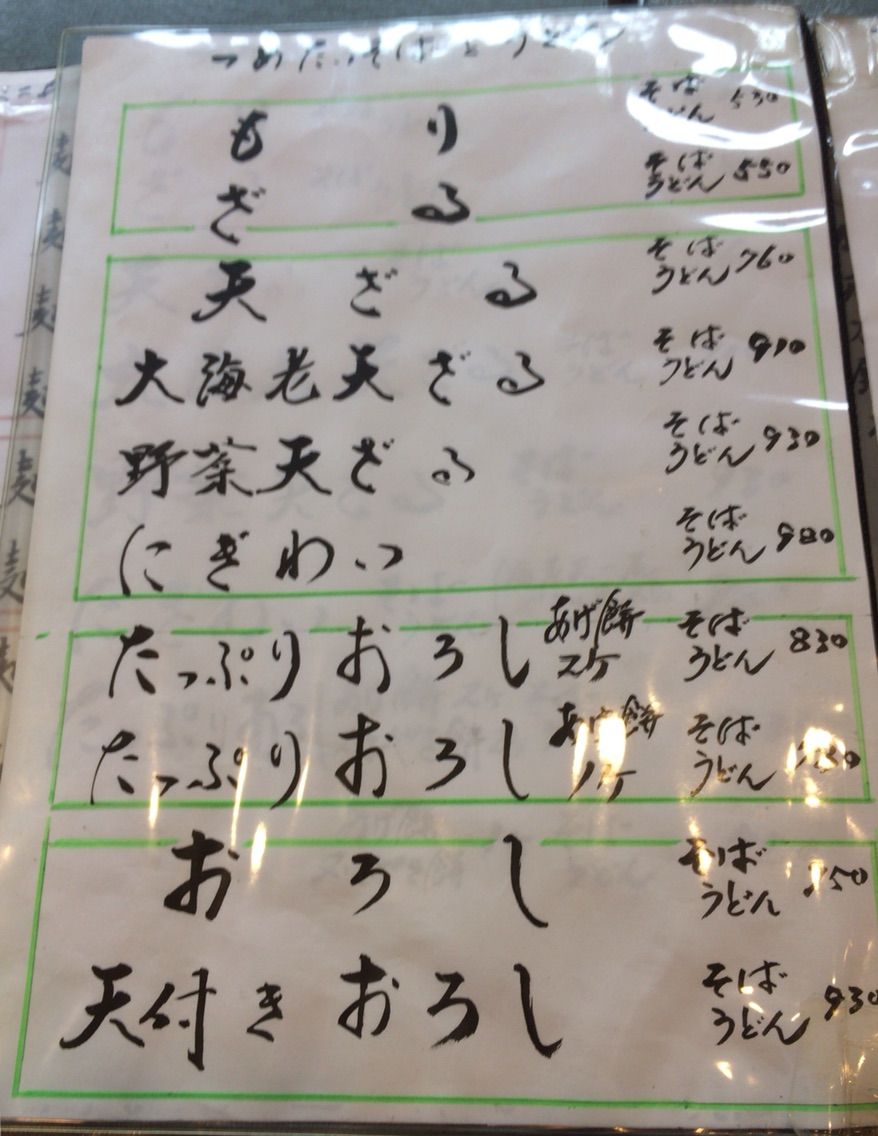 つめたいそばとうどん
もり そば うどん 530
ざる そば うどん 550
天ざる そば うどん 760
大海老天ざる そば うどん 910
野菜天ざる そば うどん 930
にぎわい そば うどん 980
たっぷりおろし あげ餅 スケ そば うどん 830
たっぷりおろし あげ餅 ノケ そば うどん
おろし そば うどん
天付きおろし そば うどん 930